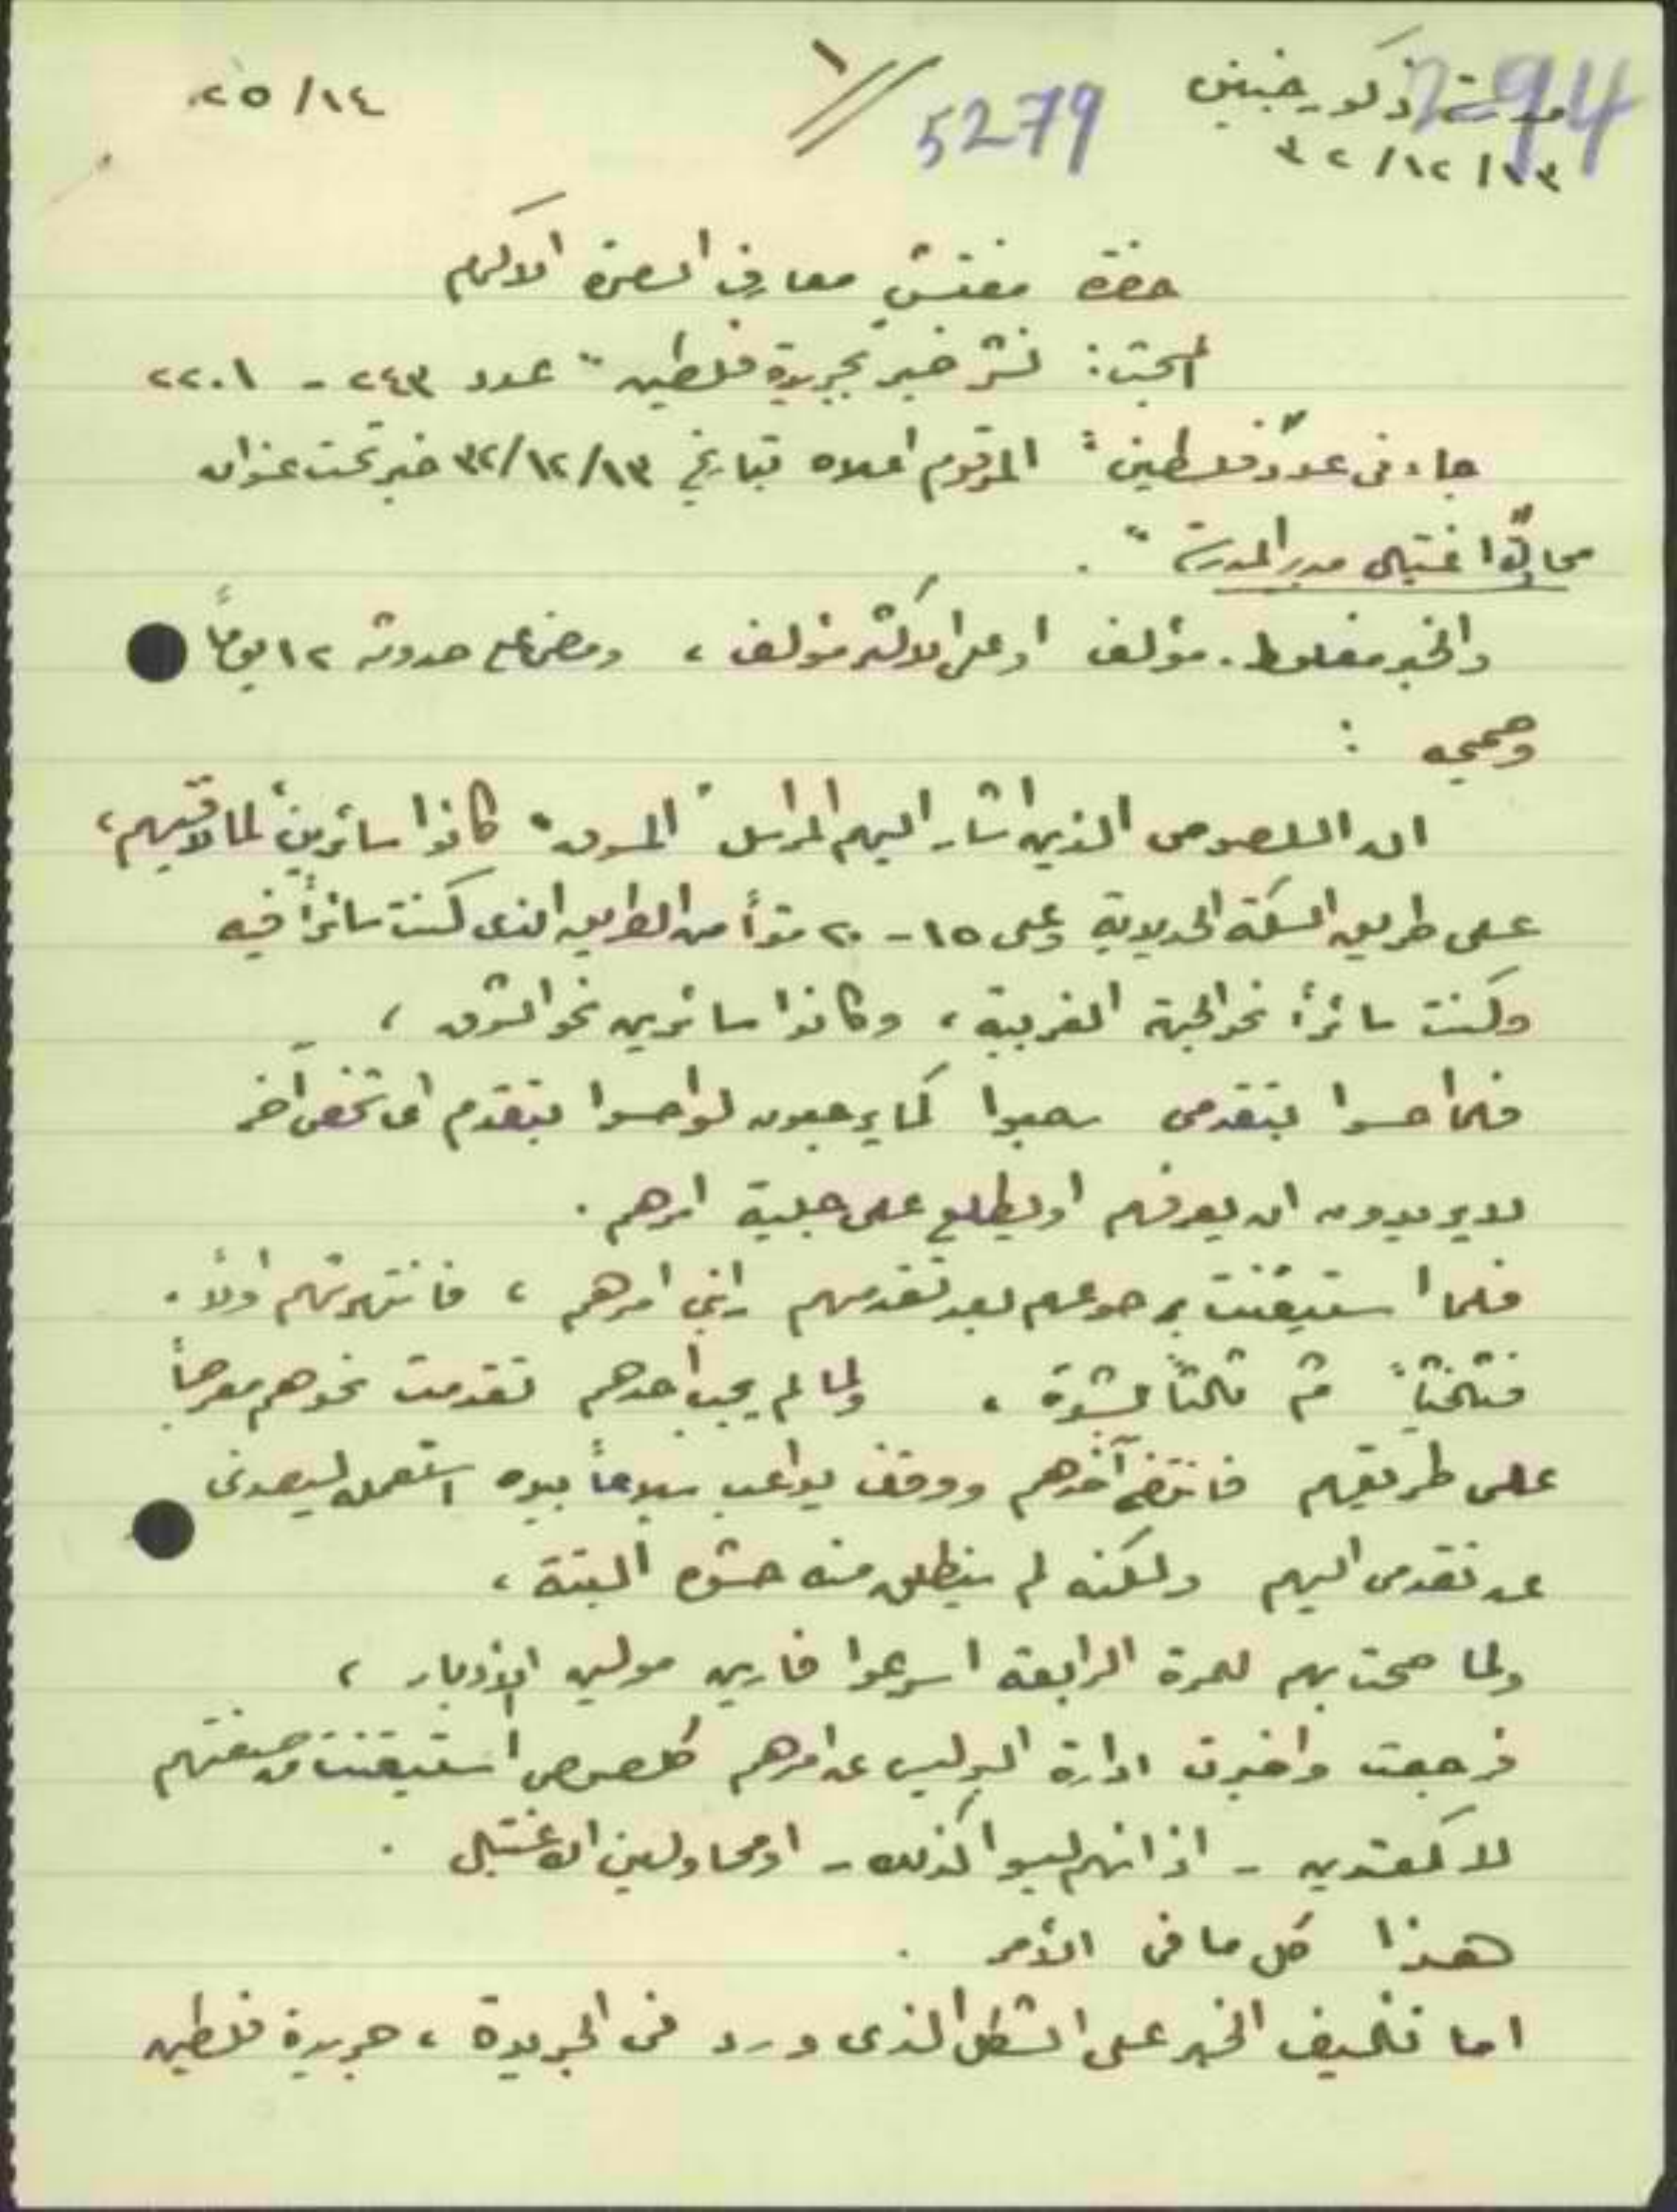 مدرسة ذكور جنين 294 5279 ١ ٢٥/١٤
٣٢/١٢/١٣
حضرة مفتش معارف الاكرم
المبحث: نشر خبر بجريدة فلسطين" عدد ٢٤٣ - ٢٢٠١
جاء في عدد "فلسطين" المرقوم اعلاه بتاريخ ٣٢/١٢/١٣ خبر تحت عنوان
"محاولة اغتيال مدير المدرسة" .
والخبر مغلوط . مؤلف او على الاكثر مؤلف ، ومضى على حدوثه ١٢ يوماً
وصحيحه :
ان اللصوص الذين اشار اليهم المراسل كانوا سائرين لملاقيهم ،
على طريق السكة الحديدية وعلى ١٥ - ٢٠ متراً من الطريق الذي كنت سائراً فيه
وكنت سائراً نحو الجهة الغربية ، وكانوا سائرين نحو الشرق ،
فلما احسوا بتقدمي كما يرجعون لو احسوا بتقدم اي شخص آخر
لا يريدون ان يعرفهم او يطلع على جلية امرهم .
فلما استيقنت برجوعهم بعد تقدمهم رابني امرهم ، فانتهرتهم اولاً .
ثم ثالثاً بشدة . ولما لم يجب احدهم تقدمت نحوهم معرجاً
على طريقهم آخرهم ووقف يداعب سلاحاً بيده استعمله ليصدني
عن تقدمي اليهم ولكنه لم ينطلق منه حشوه البتة ،
ولما صحت بهم للمرة الرابعة اسرعوا فارين مولين الأدبار ،
فرجعت واخبرت ادارة البوليس عن امرهم كلصوص استيقنت من صفتهم
لا كمعتدين - اذ انهم ليسوا كذلك - او محاولين الاغتيال .
هذا كل ما في الأمر .
اما تأليف الخبر على الشكل الذي ورد في الجريدة ، جريدة فلسطين